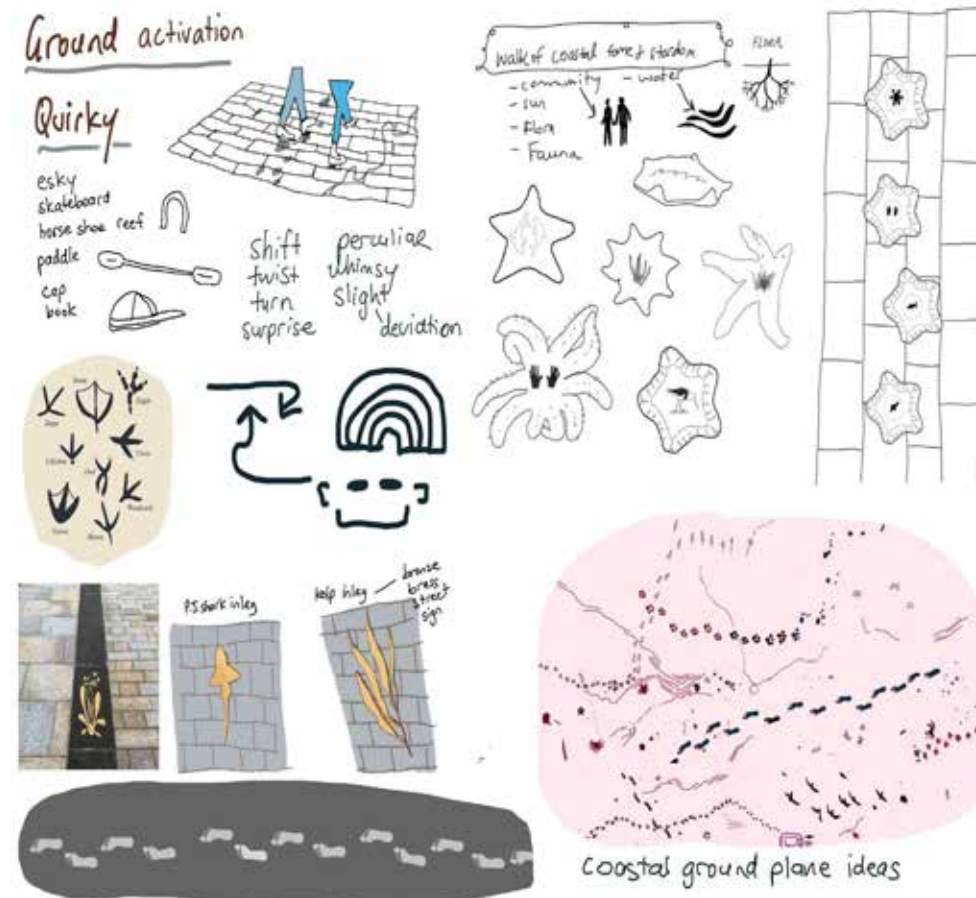 Ground activation
Quirky
esky
skateboard
horse shoe reef
paddle
cap
book
shift
twist
turn
surprise
peculiar
whimsy
slight
deviation
walk of coastal fame + stardom
- community
- sun
- flora
- Fauna
- water
P.J shark inlay
kelp inlay
bronze
brass
street
sign
coastal ground plane ideas